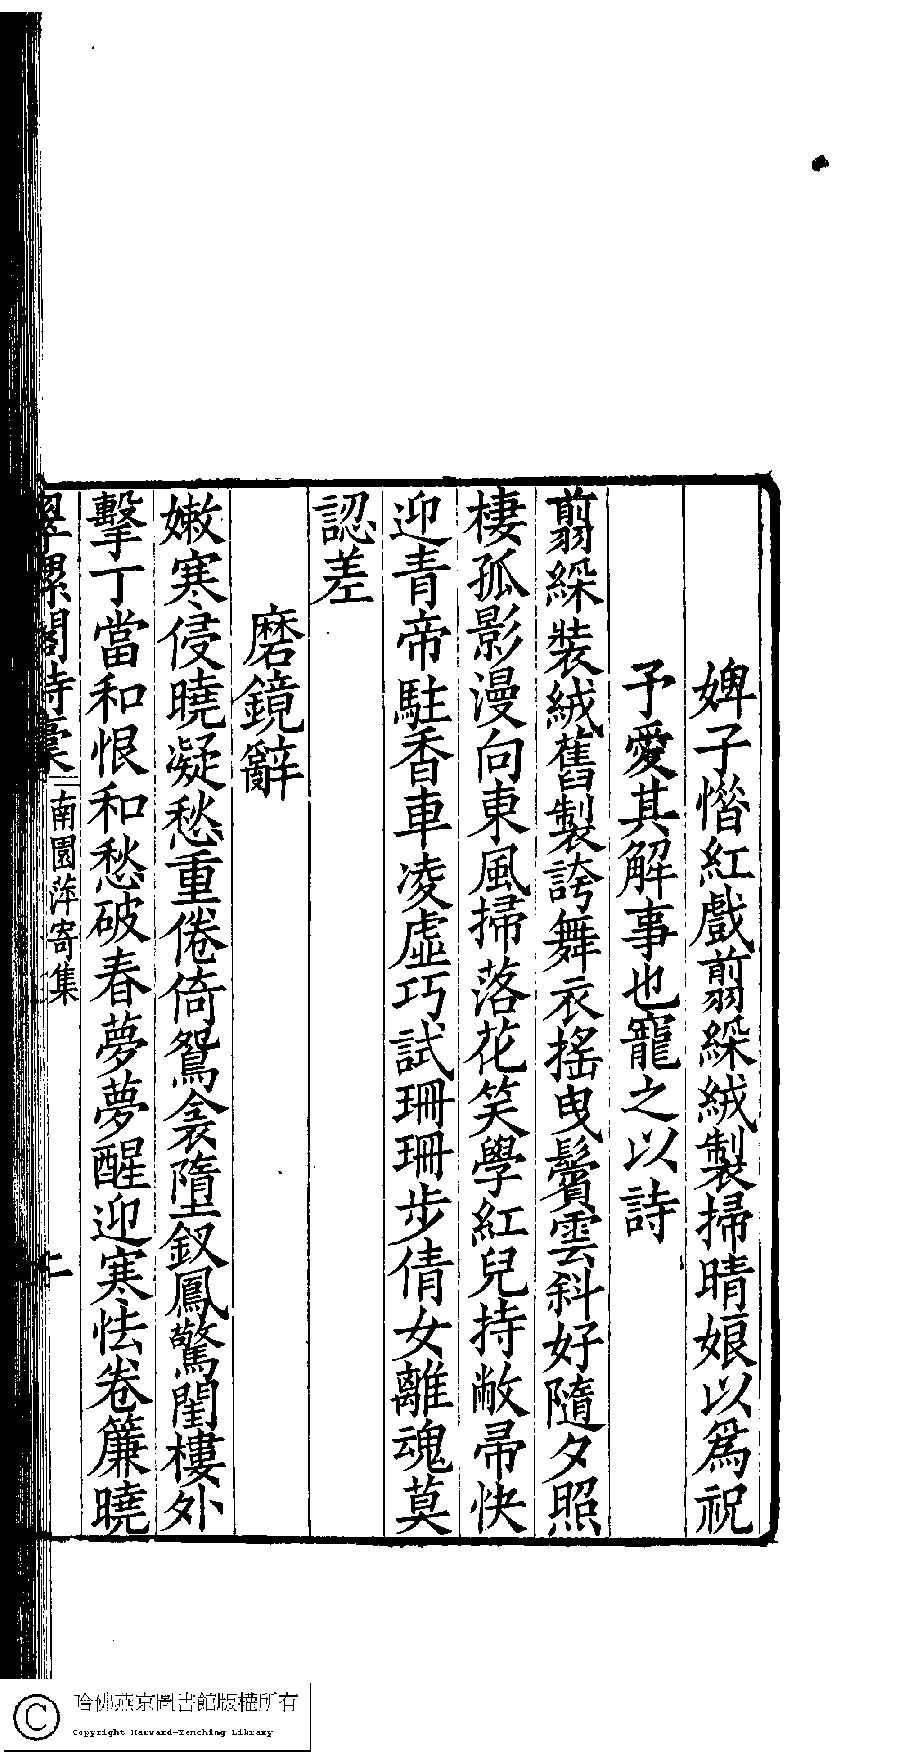 婢子惜紅戲翦綵絨製掃晴娘以爲祝
予愛其解事也寵之以詩
翦綵裝絨舊製誇舞衣搖曳鬢雲斜好隨夕照
棲孤影漫向東風掃落花笑學紅兒持敝帚快
迎青帝駐香車凌虛巧試珊珊步倩女離魂莫
認差
磨鏡辭
嫩寒侵曉凝愁重倦倚鴛衾墮釵鳳驚閨樓外
擊丁當和恨和愁破春夢夢醒迎寒怯卷簾曉
翠螺閣詩稾 南園萍寄集 二
哈佛燕京圖書館版權所有
Copyright Harvard-Yenching Library